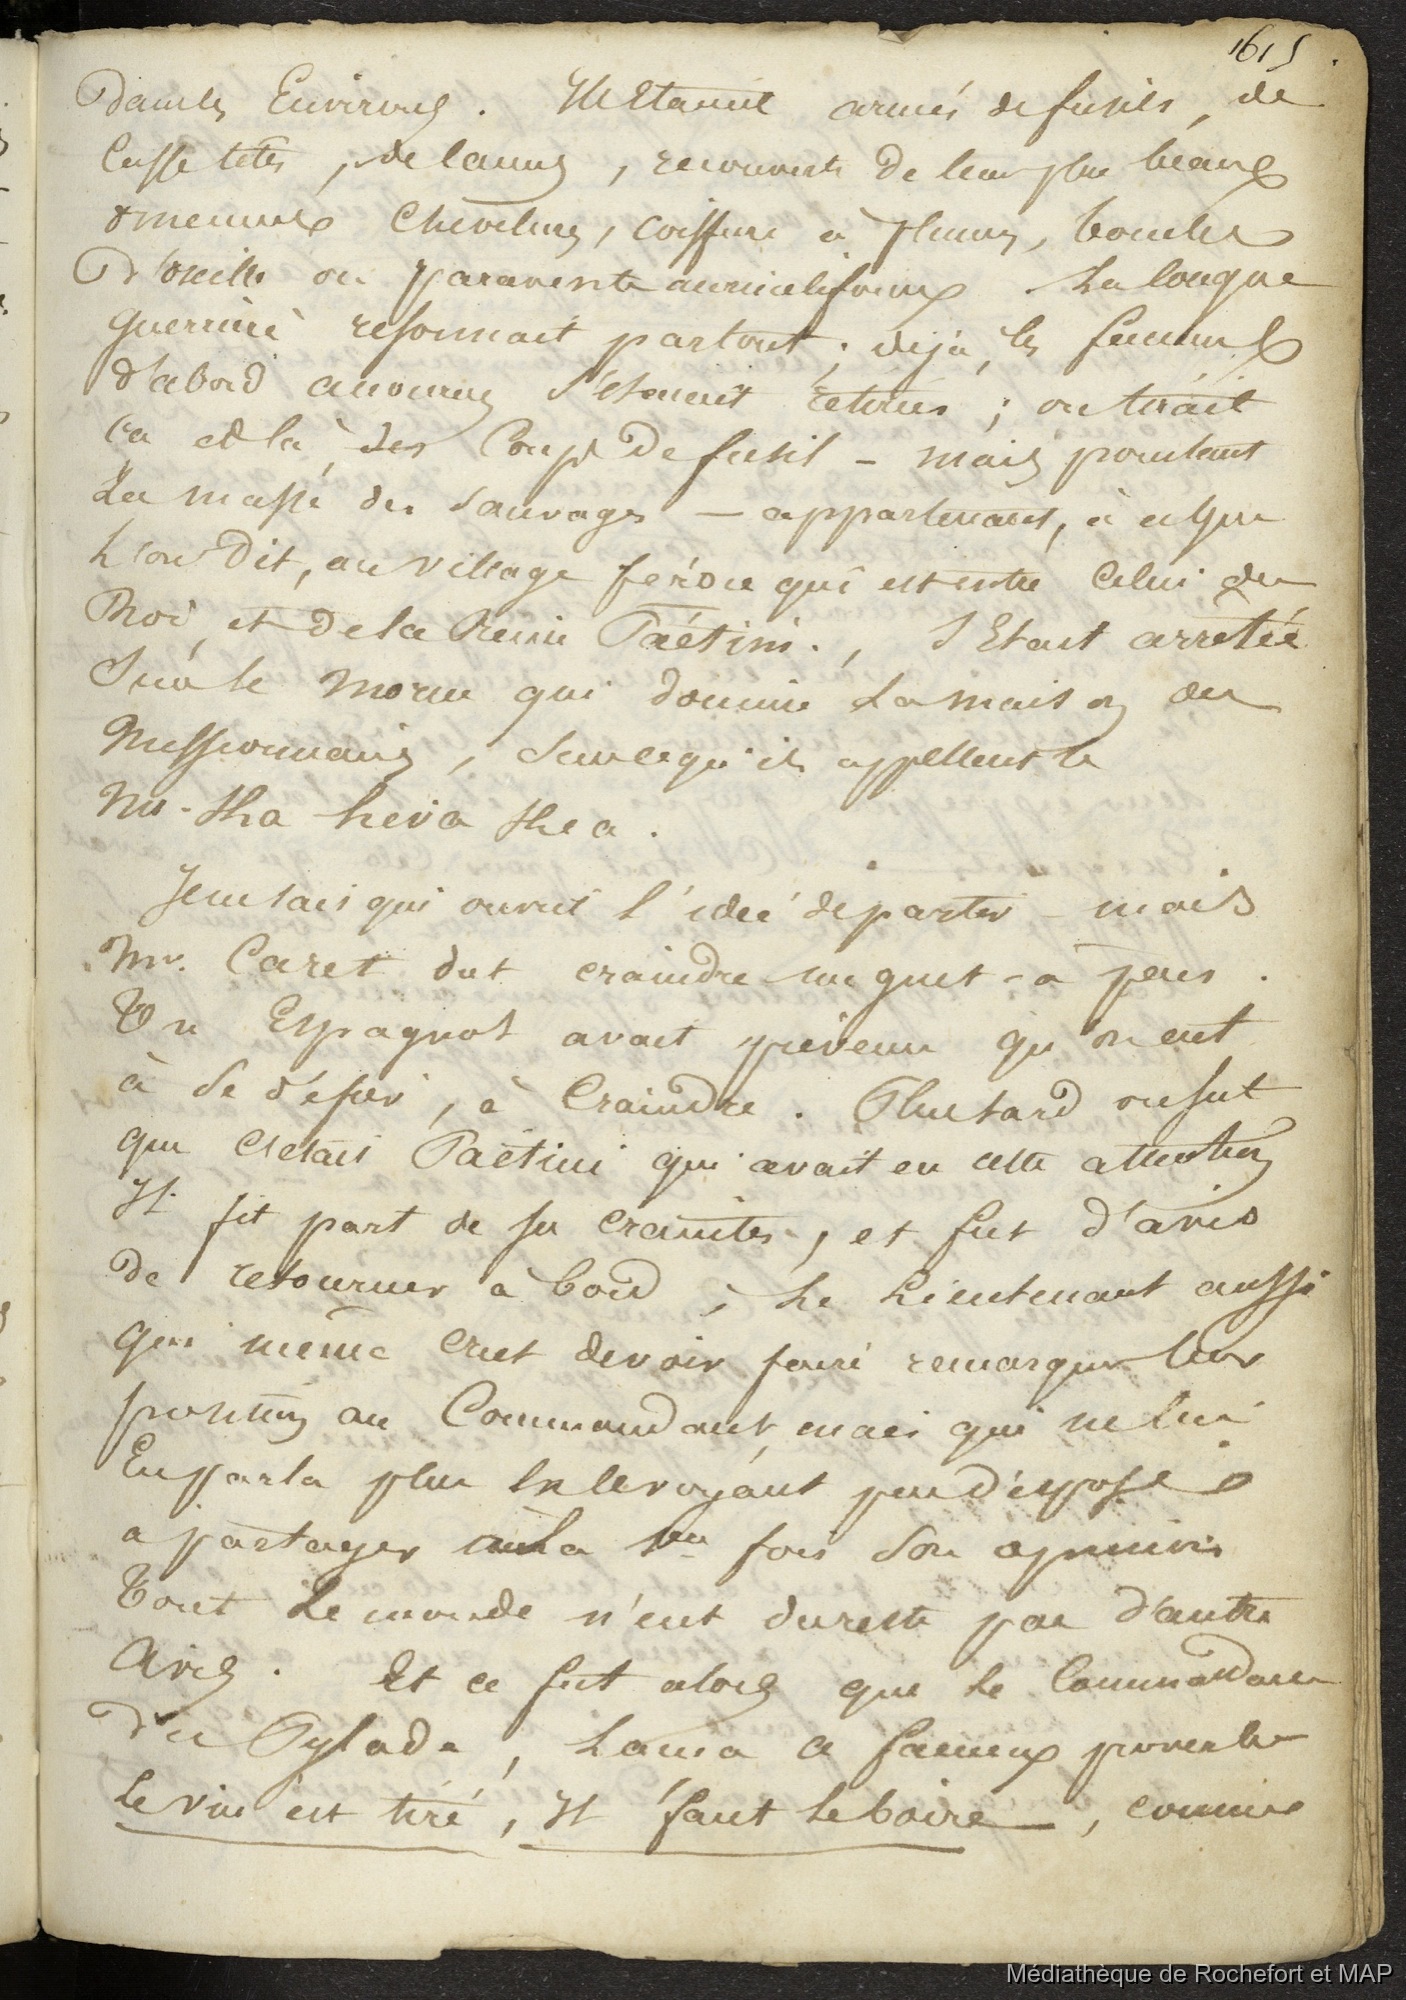 1615
Dans les Environs. Ils Etaient armés de fusils, de
Casse têtes, de lances, recouverts de leur plus beaux
ornemens chevelures, coiffure à plumes, boucles
D'oreille ou paravents auriculiformes. La conque
guerrière resonnait partout; déjà, les femmes
d'abord accourues s'étaient retirées; on tirait
ça et là, des Coups De fusil – mais pourtant
La masse des Sauvages – appartenant, à ce que
L'on Dit, au village féroce qui est entre Celui du
Roi, et De la Reine Paétini., S'Etait arretée
Sur le morne qui domine La maison des
Missionnaires, Sur ce qu'ils appellent le
heva
Je ne sais qui ouvrit l'idée de partir – mais
Mr. Caret dut craindre un guet-à pens.
Un Espagnol avait prévenu qu'on eut
à Se défier, à Craindre. Plus tard on sut
que C'etait Paëtini qui avait eu cette attention
Il fit part de ses craintes, et fut d'avis
De retourner à bord, Le Lieutenant aussi
qui même crut devoir faire remarquer leur
position au Commandant, mais qui ne lui
En parla plus En le voyant peu disposé
a partager la 1ere fois Son opinion
Tout Le monde n'eut du reste pas d'autre
Avis. Et ce fut alors que le Commandant
Du Pylade, Lança ce fameux proverbe
Le vin est tiré, Il faut le boire, comme
Médiathèque de Rochefort et MAP